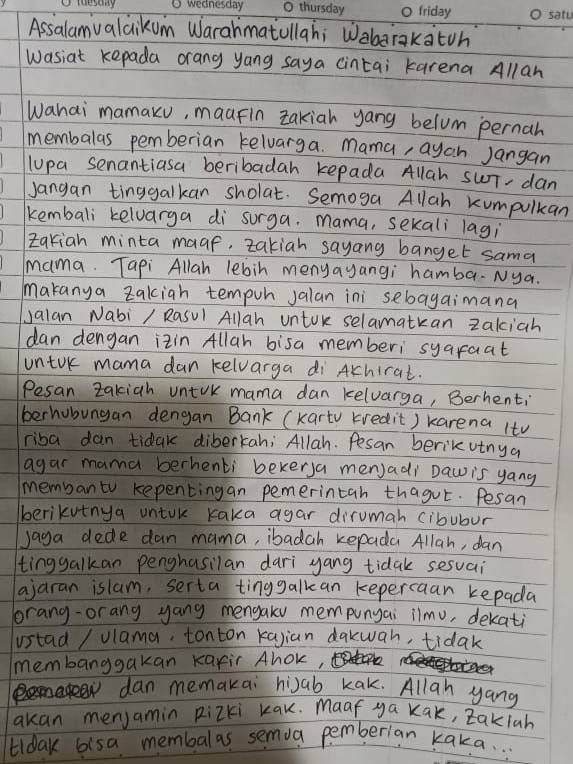 tuesday wednesday thursday friday satu
Assalamualaikum Warahmatullahi Wabarakatuh
Wasiat kepada orang yang saya cintai karena Allah
Wahai mamaku, maafin zakiah yang belum pernah
membalas pemberian keluarga. Mama, ayah jangan
lupa senantiasa beribadah kepada Allah SWT. dan
Jangan tinggalkan sholat. Semoga Allah kumpulkan
kembali keluarga di surga. Mama, sekali lagi
zakiah minta maaf, zakiah sayang banget sama
mama. Tapi Allah lebih menyayangi hamba-Nya.
makanya zakiah tempuh jalan ini sebagaimana
jalan Nabi / Rasul Allah untuk selamatkan zakiah
dan dengan izin Allah bisa memberi syafaat
untuk mama dan keluarga di Akhirat.
Pesan zakiah untuk mama dan keluarga, Berhenti
berhubungan dengan Bank (kartu kredit) karena itu
riba dan tidak diberkahi Allah. Pesan berikutnya
agar mama berhenti bekerja menjadi Dawis yang
membantu kepentingan pemerintah thagut. Pesan
berikutnya untuk kaka agar dirumah cibubur
jaga dede dan mama, ibadah kepada Allah, dan
tinggalkan penghasilan dari yang tidak sesuai
ajaran islam, serta tinggalkan kepercaan kepada
orang-orang yang mengaku mempunyai ilmu, dekati
ustad / ulama, tonton kajian dakwah, tidak
membanggakan kafir Ahok,
dan memakai hijab kak. Allah yang
akan menjamin Rizki kak. Maaf ya kak, zakiah
tidak bisa membalas semua pemberian kaka...